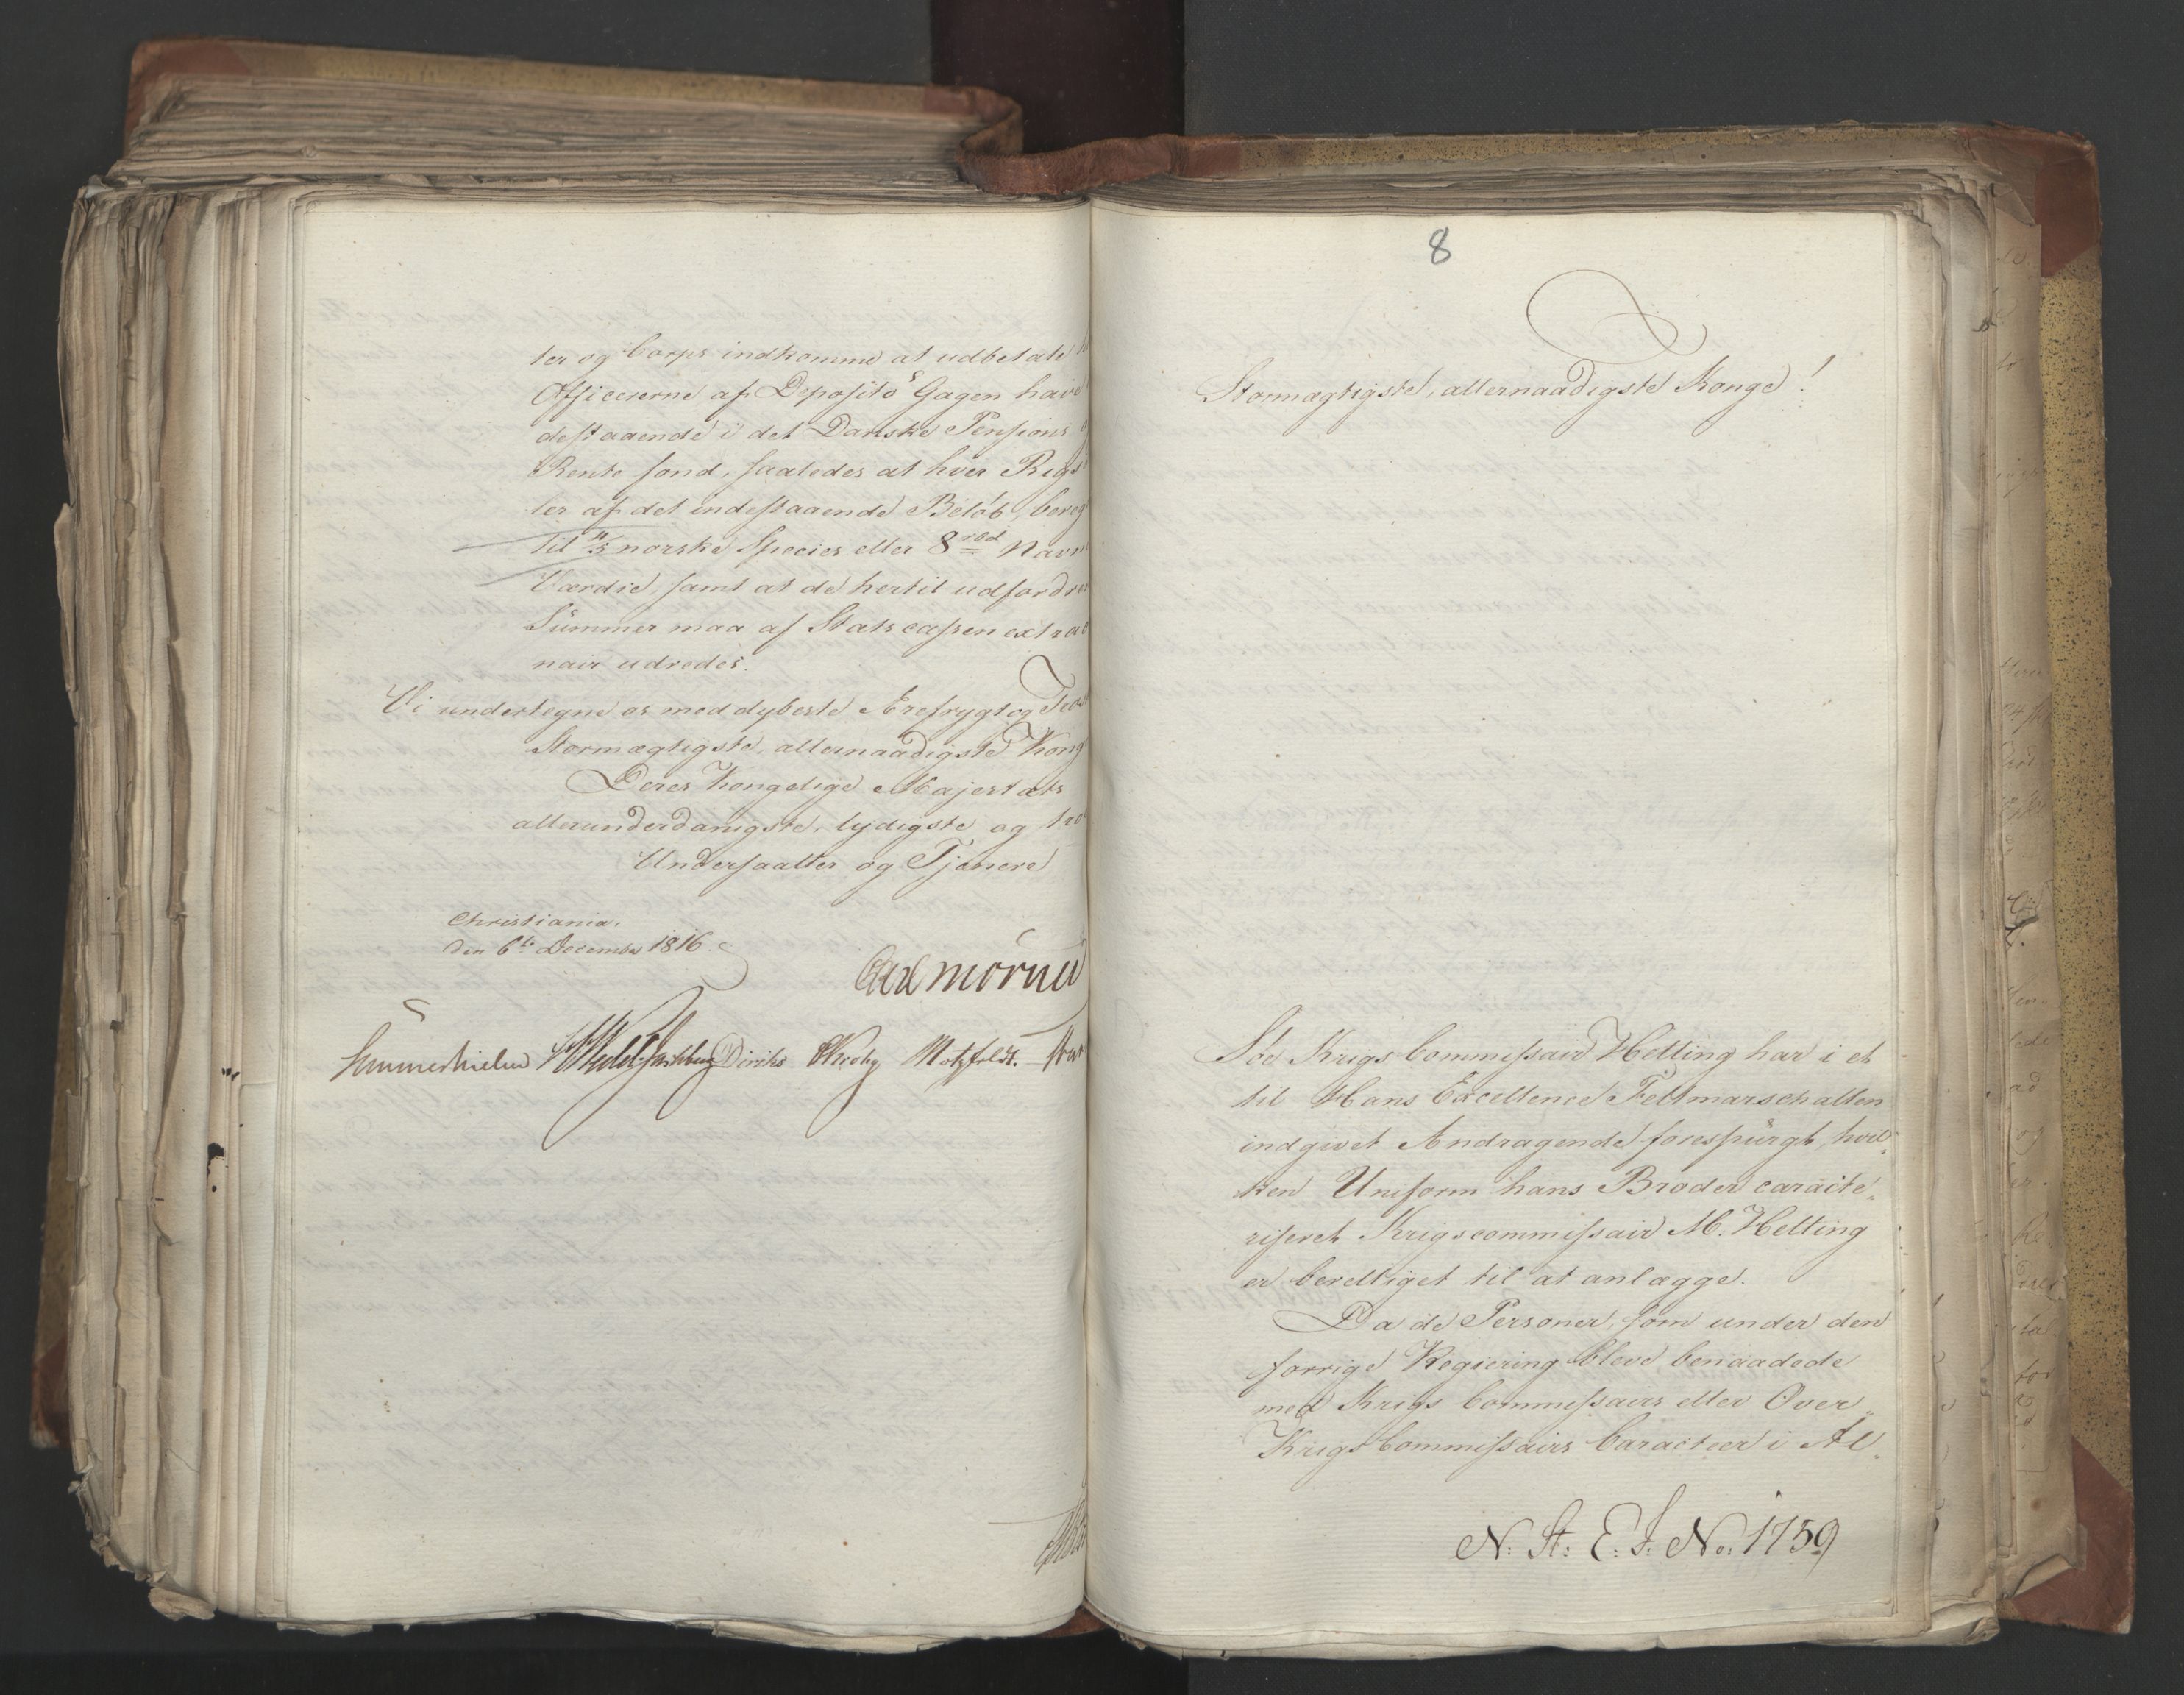 ter og Corps indkomme at udbetale
Officererne af Deposito Gagen have
destaaende i det Danske Pensions
Rente fond, saaledes at hver Rigs
ler af det indestaaende Beløb, bereg
til norske Species eller 8 rbd Navn
Værdie, samt at de hertil udfordre
Summer maa af Statscassen extraor
nair udredes.
Vi undertegne os med dybeste Ærefrygt og Tros
Stormægtigste, allernaadigste Kong
Deres Kongelige Majestæts
allerunderdanigste, lydigste og tro
Undersaatter og Tjenere
Christiania,
den 6te December 1816.
Carl Mörner
Sommerhielm HWedel Jarlsberg Diriks Krohg Motzfeldt.
8
Stormægtigste, allernaadigste Konge!
Søe Krigs Commissair Hetting har i et
til Hans Excellence Feltmarschallen
indgivet Andragende forespurgt, hvil„
ken Uniform hans Broder caracte„
riseret Krigscommissair M. Hetting
er berettiget til at anlægge.
Da de Personer, som under den
forrige Regiering bleve benaadede
med Krigs Commissairs eller Over„
Krigs Commissairs Caracteer i Al„
N: St: E: J: No: 1759